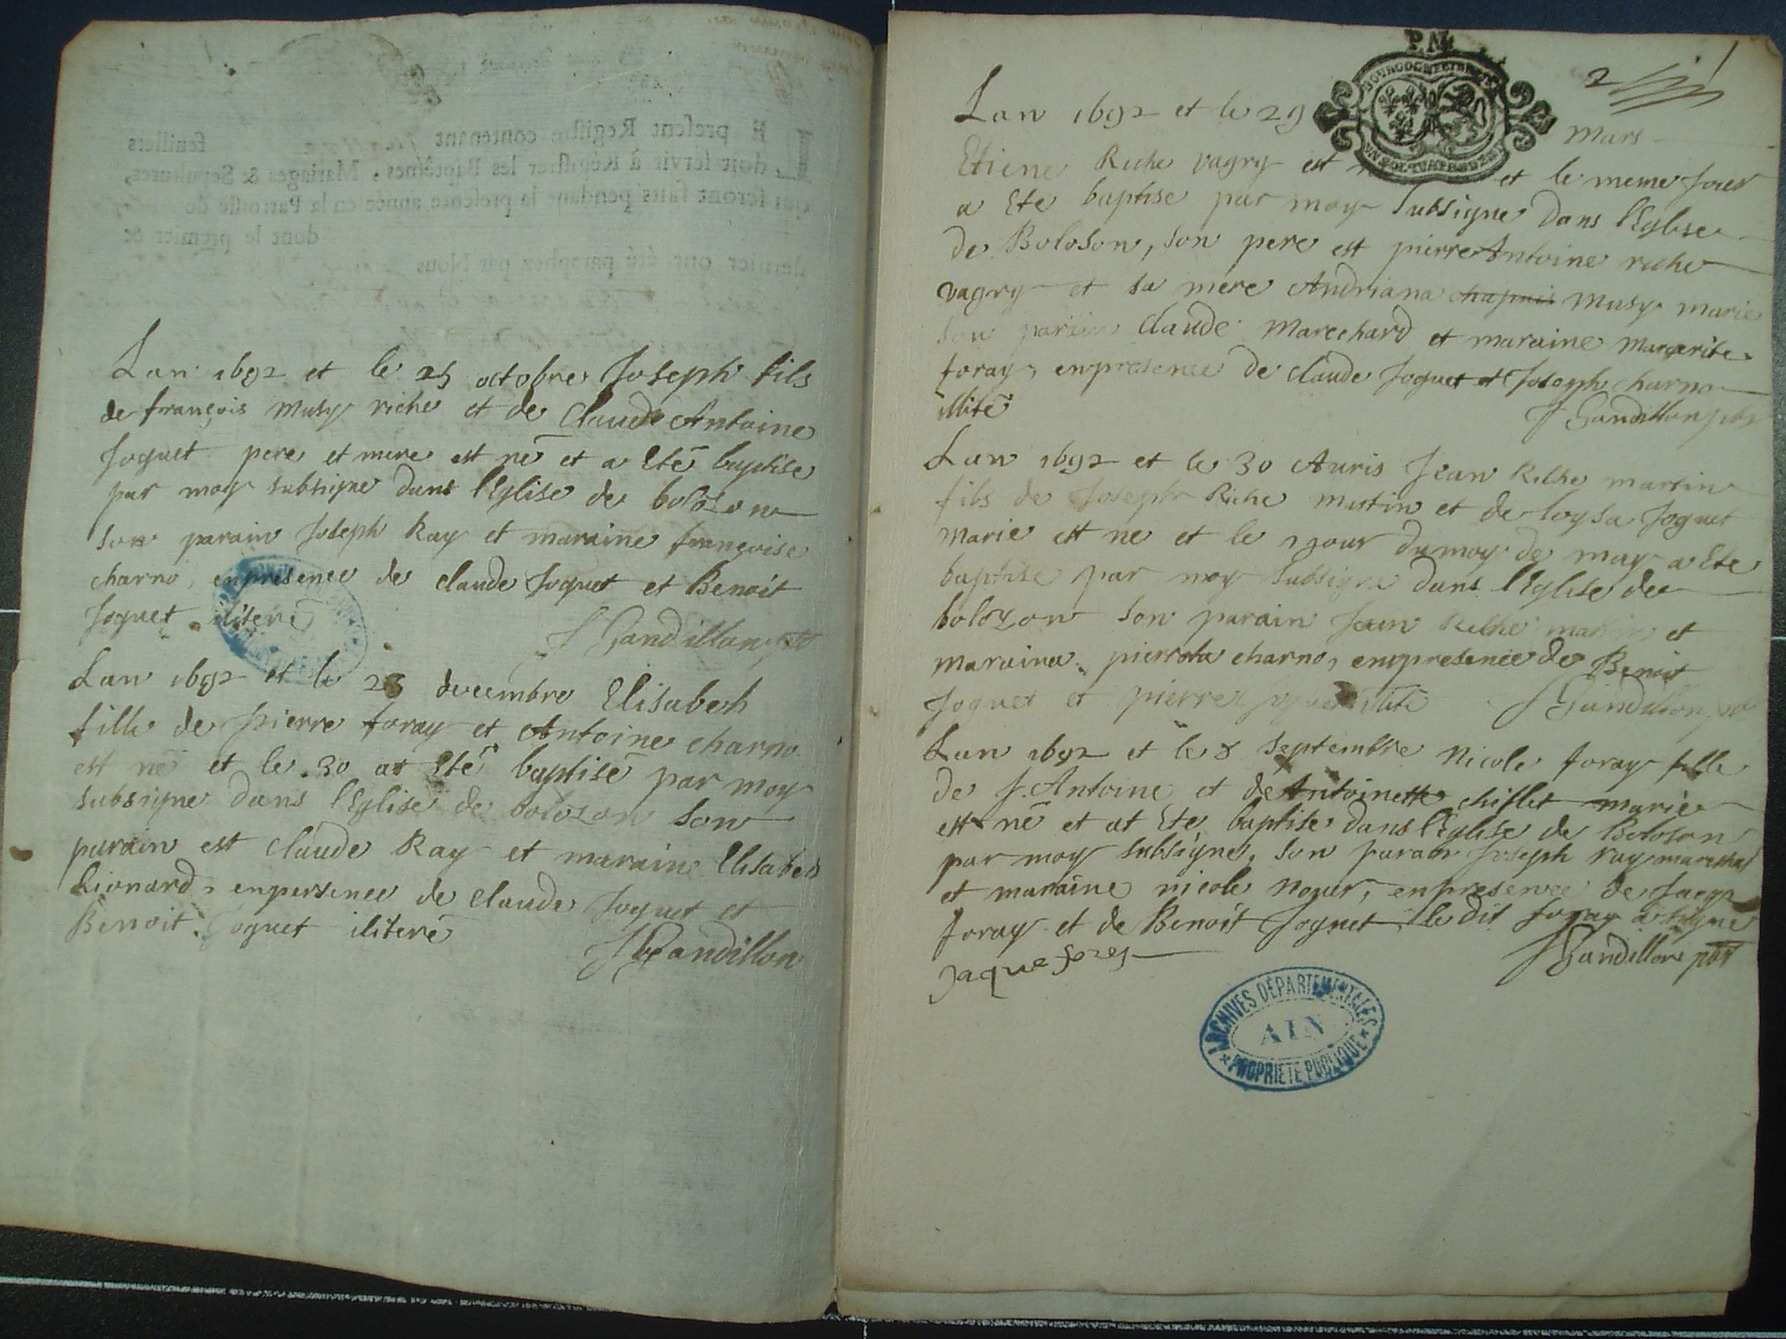 Lan 1692 et le 25 octobre Joseph fils
de françois Musy riche et de Claude Antoine
Joguet pere et mere est né et a Eté baptise
par moy subsigne dans lEglise de bolozon
son parain Joseph Ray et maraine françoise
charno, enpresence de claude Joguet et Benoit
Joguet iliteré
J Gandillon
Lan 1692 et le 23 decembre Elisabeth
fille de pierre foray et Antoine charno
est né et le 30 at Eté baptisé par moy
subsigne dans lEglise de bolozon son
parain est claude Ray et maraine Elisabeth
Lionard, enpersence de claude Joguet et
Benoit Joguet iliteré
J Gandillon
P. M.
2
1
Lan 1692 et le 29 Mars
Etiene Riche vagry est et le meme Jour
a Ete baptise par moy subsigne dans lEglise
de Boloson, son pere est pierre Antoine riche
vagry et sa mere Andriana chapuis Musy marie
son parain Claude Marechard et maraine Margarite
foray, enpresence de claude Joguet et Joseph charno
illité
J Gandillon
Lan 1692 et le 30 Auris Jean Riche martin
fils de Joseph Riche martin et de loysa Joguet
marie est ne et le 1 jour du moy de may a Ete
baptise par moy subsigne dans lEglise de
bolozon son parain Jean Riche martin et
maraina pierrota charno, enpresence de Benoit
Joguet et pierre
J Gandillon
Lan 1692 et le 8 septembre Nicole foray fille
de J. Antoine et de Antoinette chiflet marie
est né et at Ete baptise dans lEglise de Boloson
par moy subsigne, son parain Joseph ray marechal
et maraine nicole, enpresence de Jacque
foray et de Benoit Joguet, le dit foray a signe
Jaque forey
J Gandillon
ARCHIVES DÉPARTEMENTALES
AIN
PROPRIÉTÉ PUBLIQUE